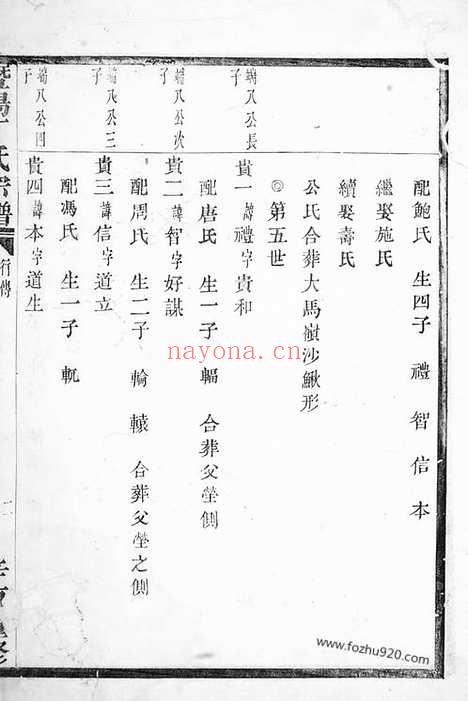 配鮑氏 生四子 禮 智 信 本
繼娶施氏
續娶壽氏
公氏合葬大馬嶺沙鰍形
◎第五世
端八公長子
貴一諱禮字貴和
配唐氏 生一子 輻 合葬父塋側
端八公次子
貴二諱智字好謀
配周氏 生二子 輪 轅 合葬父塋之側
端八公三子
貴三諱信字道立
配馮氏 生一子 軏
端八公四子
貴四諱本字道生
氏宗譜
行傳
nayona.cn
www.fozhu920.com